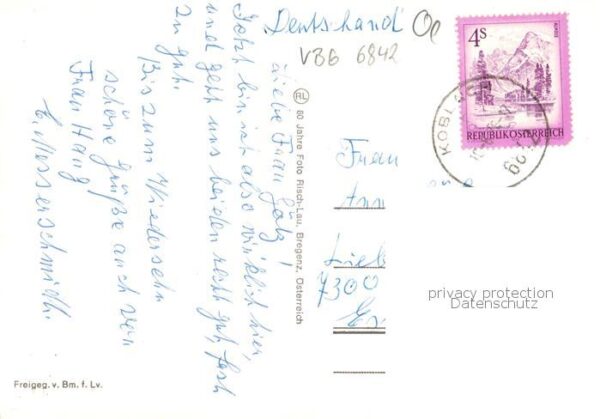 Deutschand
VBB 6842
Liebe Frau Götz!
Jetzt bin ich also wirklich hier,
und geht uns beiden recht gut, fast
zu gut.
Bis zum Wiedersehn
schöne Grüße auch von
Frau Haug
E. Messerschmidt.
RL 80 Jahre Foto Risch-Lau, Bregenz, Österreich
4S
REPUBLIK ÖSTERREICH
KOBL
Frau
Ann
Lieb
7300
Es
privacy protection
Datenschutz
Freigeg. v. Bm. f. Lv.